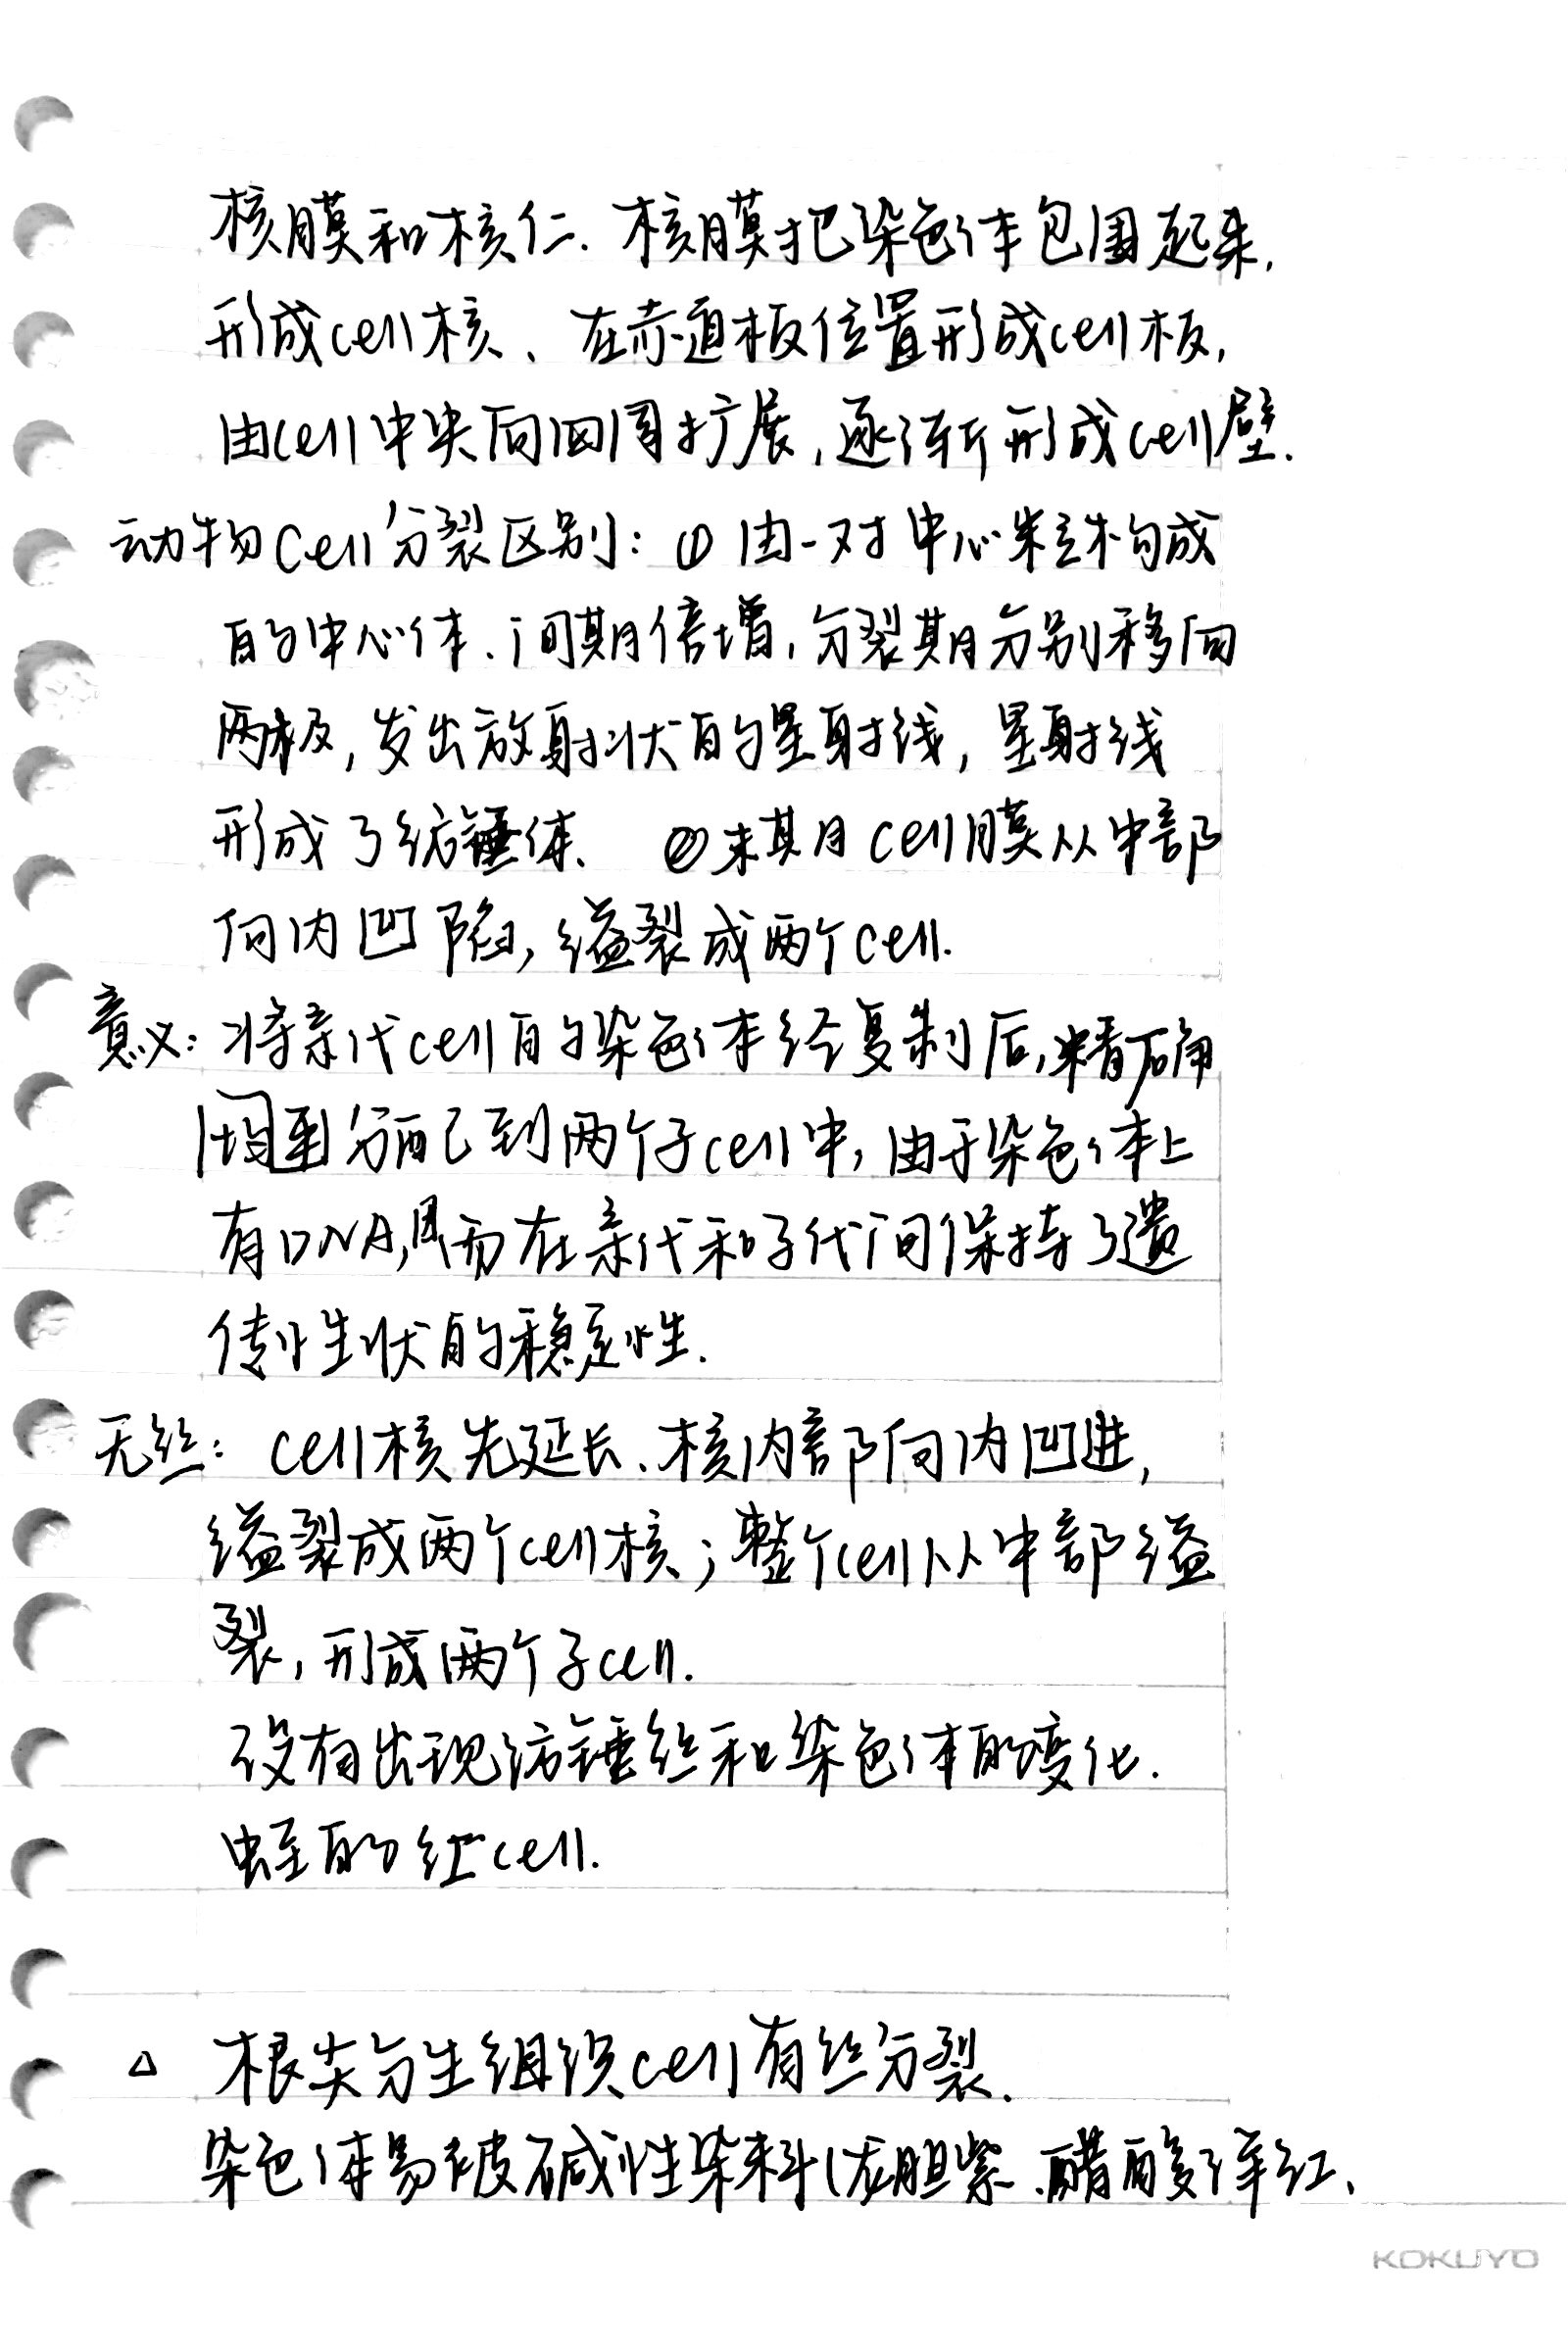 核膜和核仁.核膜把染色体包围起来,
形成cell核、在赤道板位置形成cell板,
由cell中央向四周扩展,逐渐形成cell壁.
动物cell分裂区别:① 由一对中心粒构成
的中心体、间期倍增,分裂期分别移向
两极,发出放射状的星射线,星射线
形成了纺锤体、 ②末期cell膜从中部
向内凹陷,缢裂成两个cell.
意义:将亲代cell的染色体经复制后,精确
均分配到两个子cell中,由于染色体上
有DNA,因而在亲代和子代间保持了遗
传性状的稳定性.
无丝:cell核先延长、核内部向内凹进,
缢裂成两个cell核;整个cell从中部缢
裂,形成两个子cell.
没有出现纺锤丝和染色体的变化.
蛙的红cell.
△ 根尖分生组织cell有丝分裂.
染色体易被碱性染料(龙胆紫、醋酸洋红、
KOKUYO